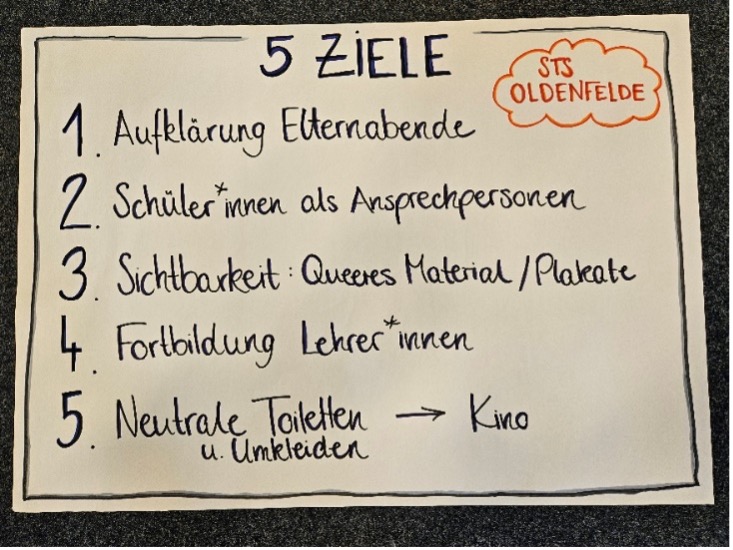 5 ZIELE
STS
OLDENFELDE
1. Aufklärung Elternabende
2. Schüler*innen als Ansprechpersonen
3. Sichtbarkeit: Queeres Material / Plakate
4. Fortbildung Lehrer*innen
5. Neutrale Toiletten → Kino
u. Umkleiden